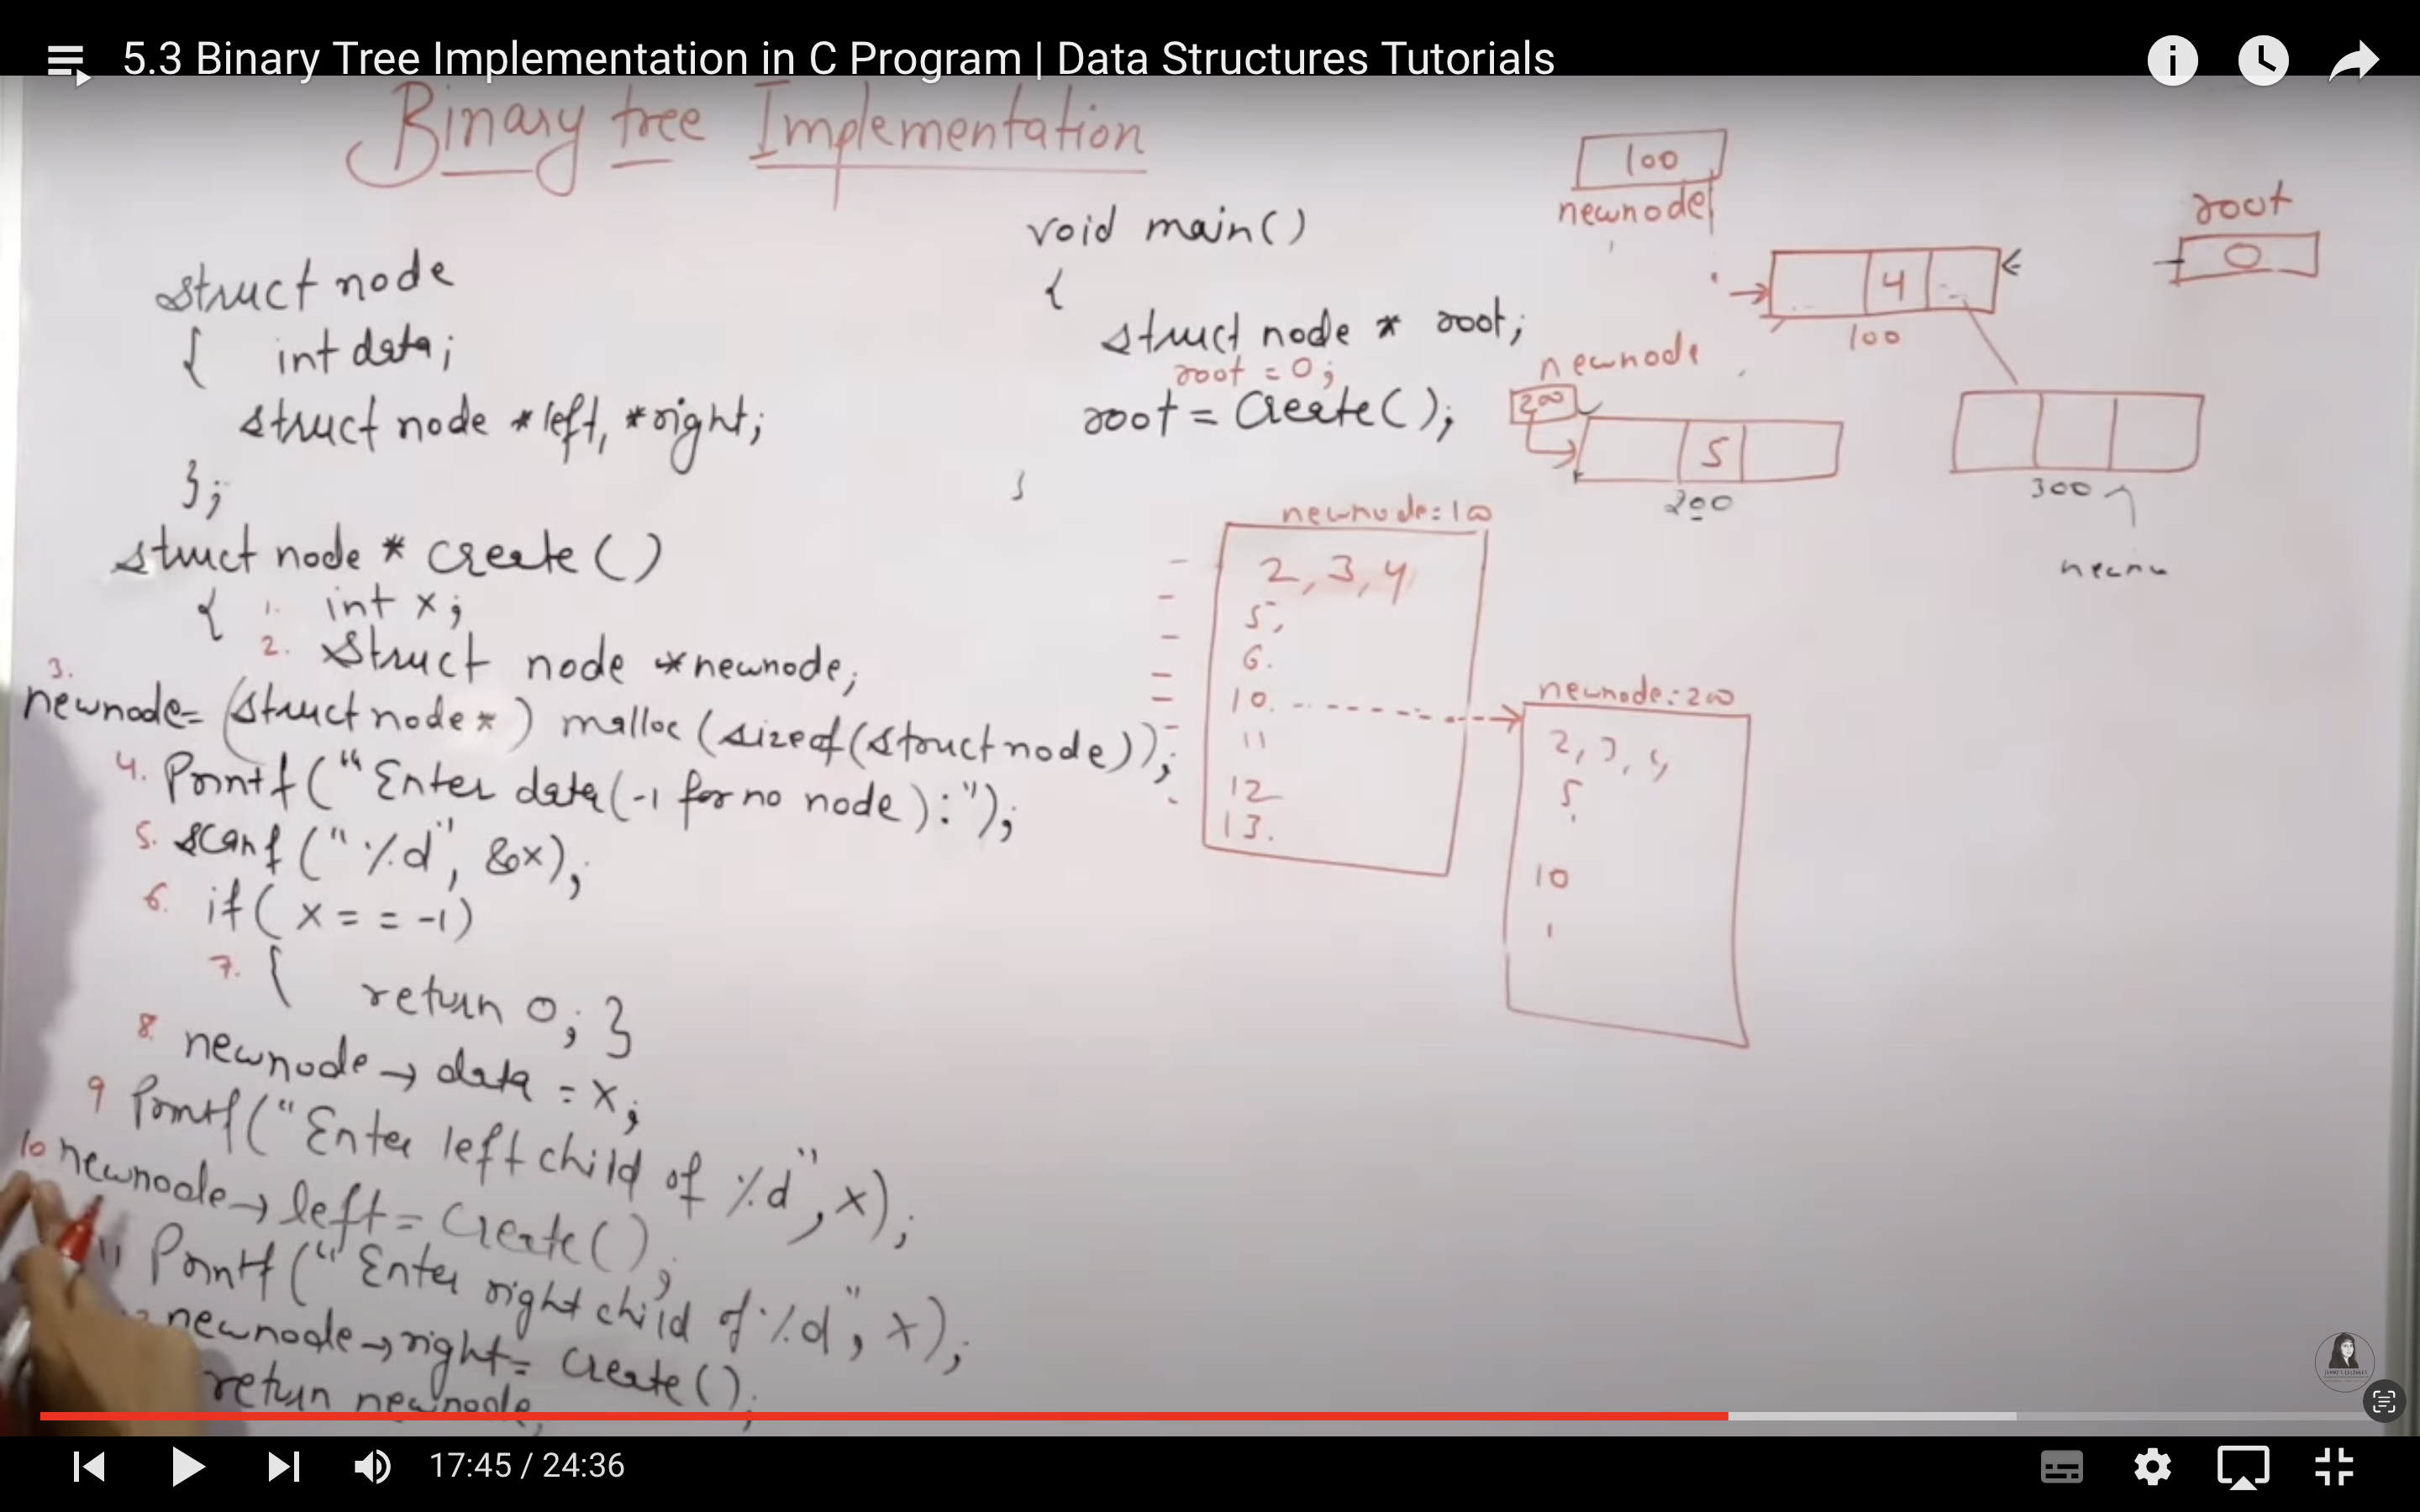 5.3 Binary Tree Implementation in C Program | Data Structures Tutorials
Binary tree Implementation
struct node
{ int data;
struct node *left, *right;
};
struct node * create()
{ 1. int x;
2. struct node *newnode;
3.
newnode= (struct node*) malloc (sizeof(struct node));
4. Printf("Enter data(-1 for no node):");
5. scanf("%d", &x);
6. if( x = = -1)
7. { return 0; }
8. newnode→data = x;
9 Printf("Enter left child of %d", x);
10 newnode→left= create();
11 Printf("Enter right child of %d", x);
newnode→right= create();
return newnode;
void main()
{
struct node * root;
root = 0;
root = create();
}
100
newnode
root
0
4
100
newnode
200
5
200
300
newnode:100
2, 3, 4
5,
6.
10.
11
12
13.
newnode:200
2, 3, 4
5
10
17:45 / 24:36